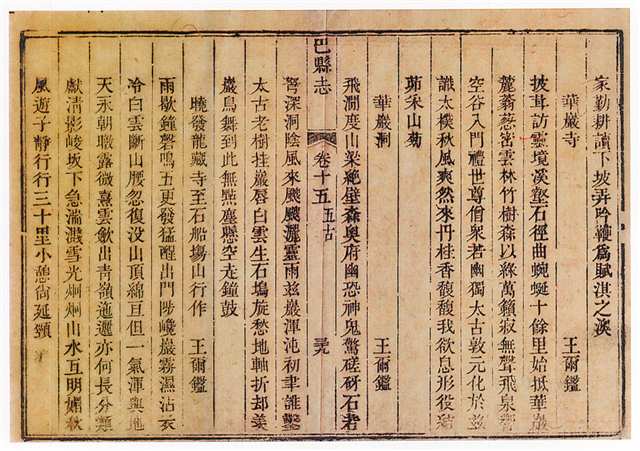 家勤耕讀下坡弄吟鞭為賦淇之澳
華巖寺 王爾鑑
披茸訪靈境溪壑石徑曲蜿蜒十餘里始抵華巖
麓蓊葱密雲林竹樹森以綠萬籟寂無聲飛泉響
空谷入門禮世尊僧衆若幽獨太古敦元化於茲
識太樸秋風爽然來丹桂香馥馥我欲息形役結
茆采山菊
華巖洞 王爾鑑
飛澗度山梁絕壁森奧府幽恐神鬼驚磋砑石若
巴縣志 卷十五 五古
弩深洞陰風來颼颼灑靈雨茲巖渾沌初聿誰鑿
太古老樹挂巖唇白雲生石塢旋愁地軸折却羨
巖鳥舞到此無㸃塵懸空走鐘鼓
曉發龍藏寺至石船塲山行作 王爾鑑
雨歇鐘磬鳴五更發猛醒出門陟巉巖霧濕沾衣
冷白雲斷山腰忽復没山頂綿亘但一氣渾輿地
天永朝暾露微熹雲歛出青嶺迤邐亦何長分難
獻清影峻坂下急湍濺雪光炯炯山水互明媚秋
風遊子靜行行三十里小憩尚延頸